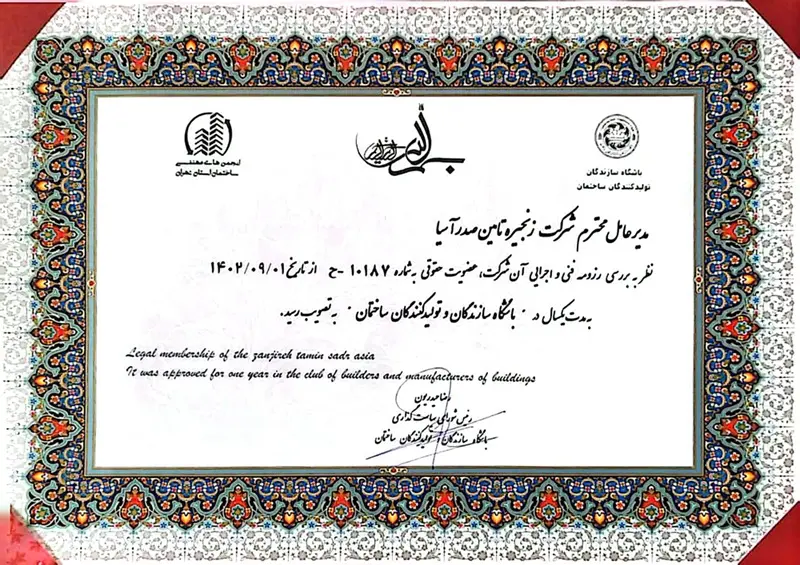 انجمن های مهندسی
ساختمان استان تهران
باشگاه سازندگان
تولیدکنندگان ساختمان
مدیرعامل محترم شرکت زنجیره تامین صدر آسیا
نظر به بررسی رزومه فنی و اجرایی آن شرکت، عضویت حقوقی به شماره ۱۰۱۸۷-ح از تاریخ ۱۴۰۲/۰۹/۰۱
به مدت یکسال در " باشگاه سازندگان و تولیدکنندگان ساختمان " به تصویب رسید.
Legal membership of the zanjireh tamin sadr asia
It was approved for one year in the club of builders and manufacturers of buildings
رضا حیدریون
رئیس شورای سیاست گذاری
باشگاه سازندگان و تولیدکنندگان ساختمان